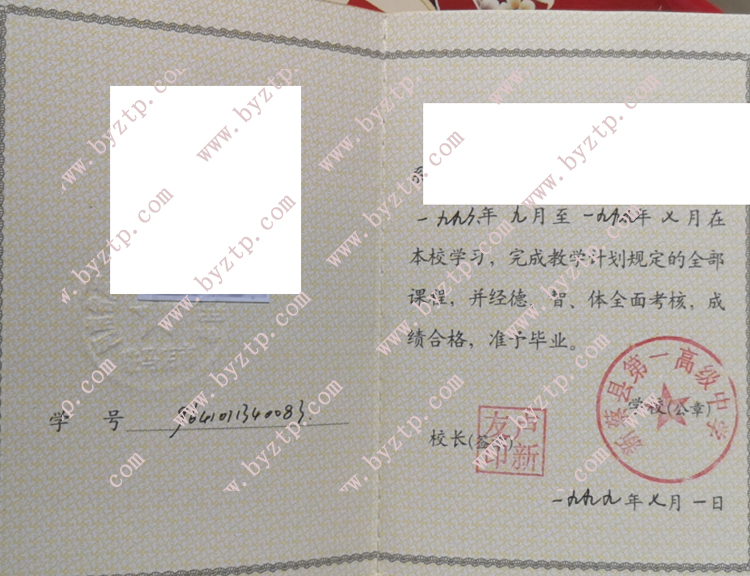 学 号 9641011340083
一九九六年 九月至 一九九九年 七月在
本校学习，完成教学计划规定的全部
课程，并经德、智、体全面考核，成
绩合格，准予毕业。
新蔡县第一高级中学
学校(公章)
校长(签章)
卢新友印
一九九九年七月一日
www.byztp.com